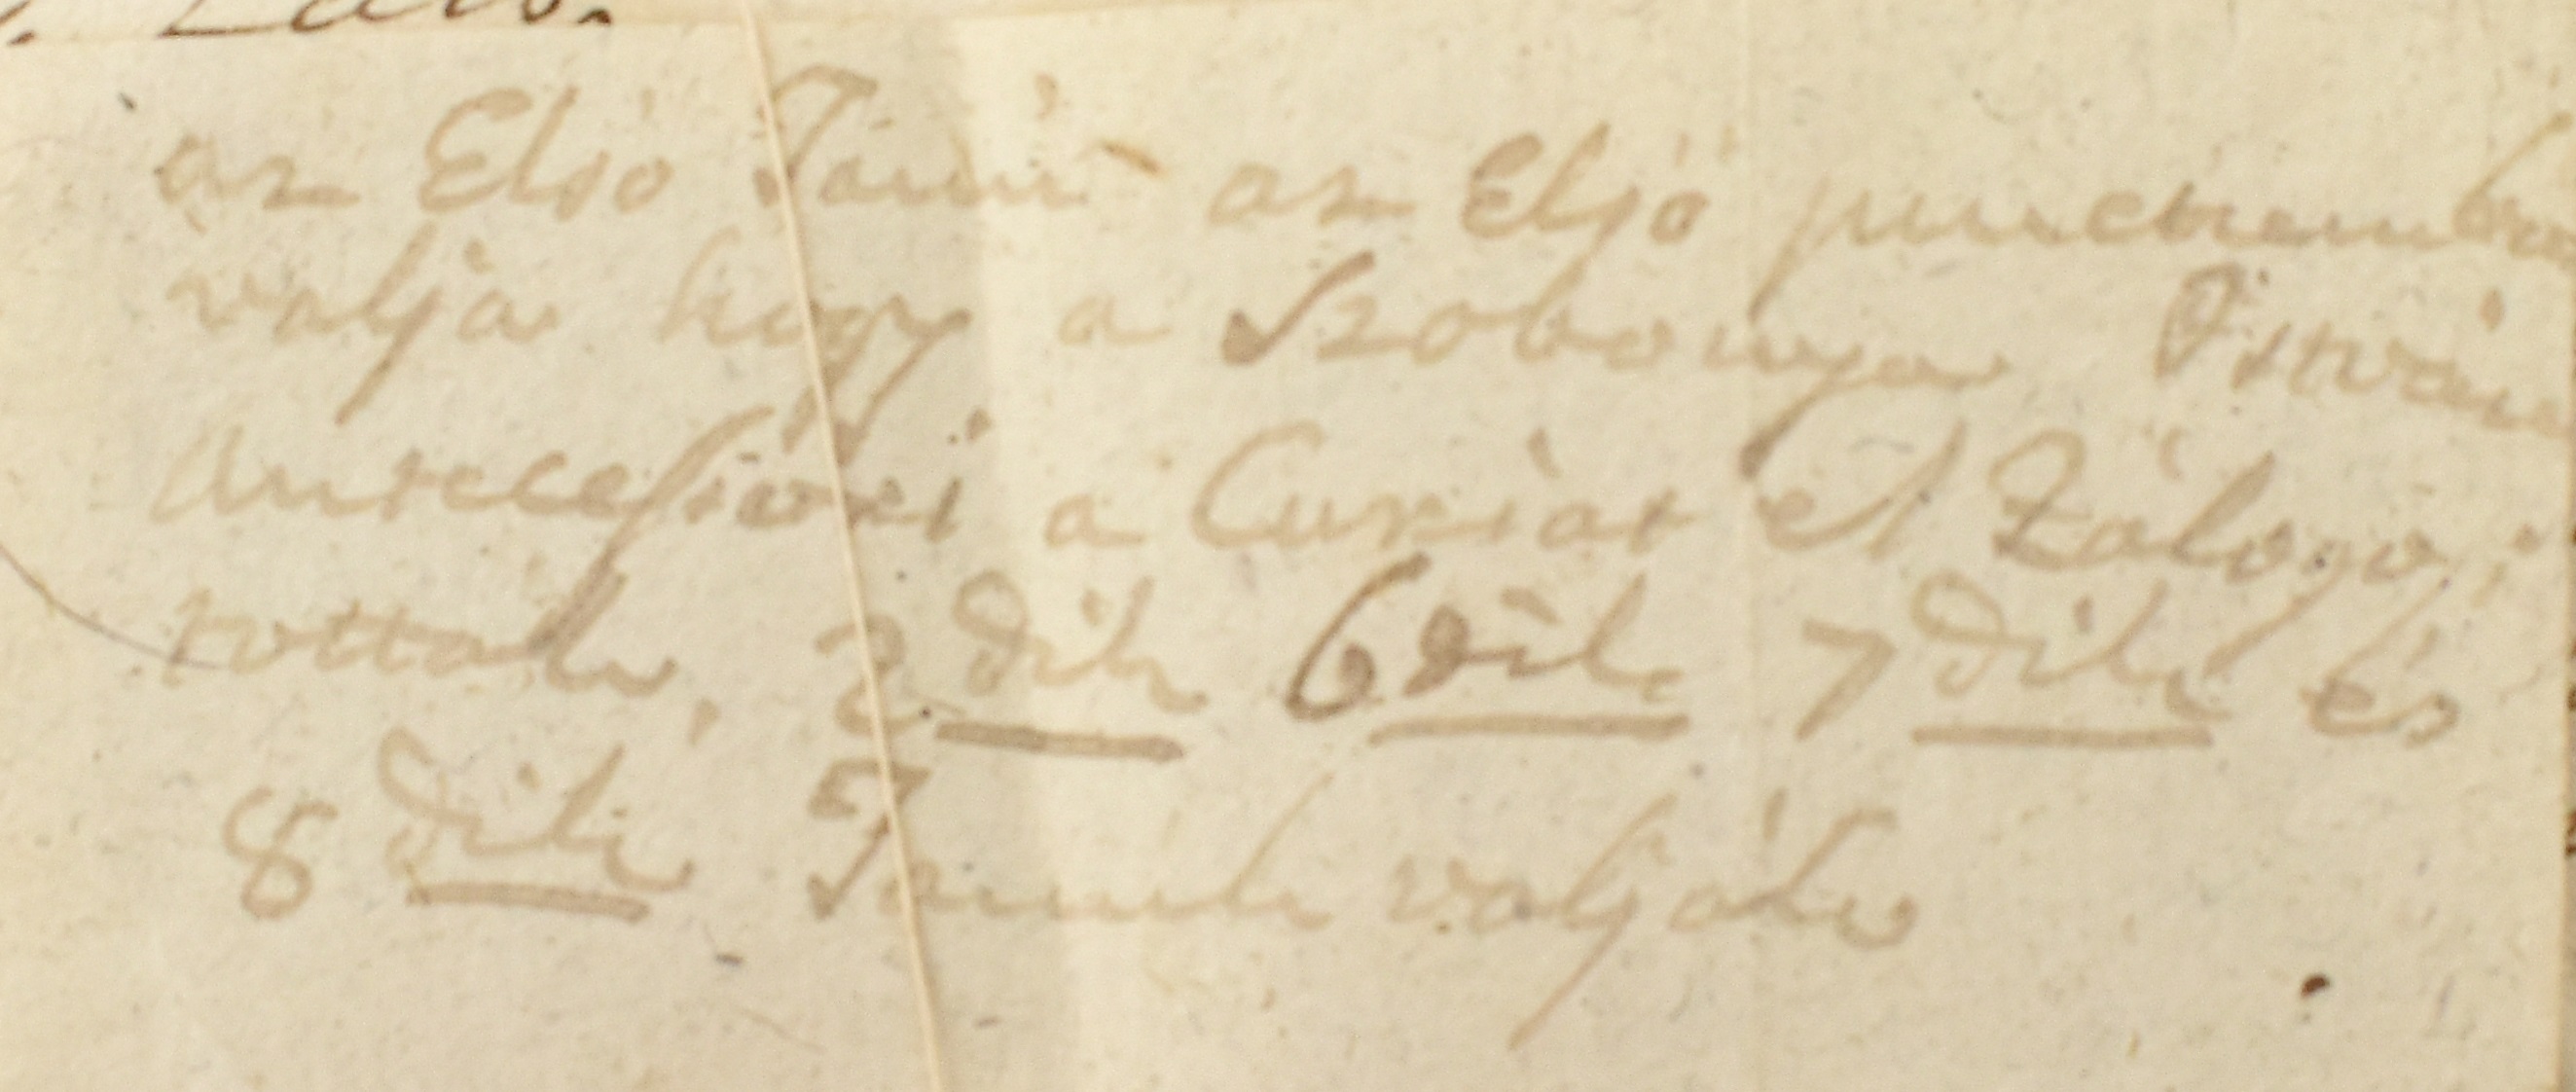 az Elsö Tanu az Elsö punctumba
valja hogy a Szobonya Istvan
Antecessori a Curiat el Zálogo,
sottak, 2dik 6dik 7dik és
8dik Tanuk valják